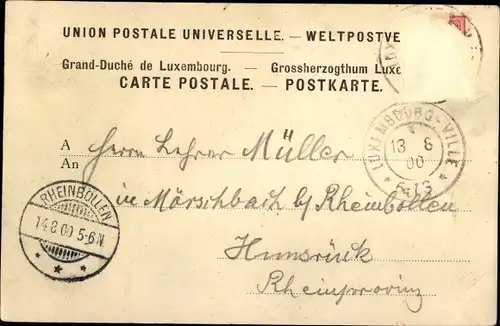 UNION POSTALE UNIVERSELLE. — WELTPOSTVE
Grand-Duché de Luxembourg. — Grossherzogthum Luxe
CARTE POSTALE. — POSTKARTE.
LUXEMBOURG-VILLE
13 8
00
A
An
Herrn Lehrer Müller
in Mörschbach b/ Rheinböllen
Hunsrück
Rheinprovinz
RHEINBÖLLEN
14.8.00 5-6N